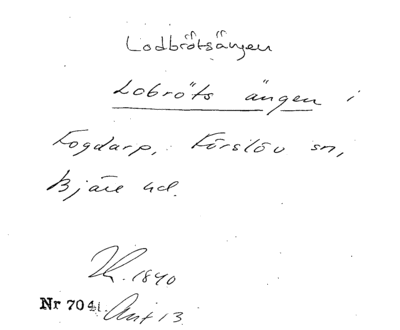 Lodbrötsängen
Lobröts ängen i
Fogdarp, Förslöv sn,
Bjäre hd.
1840
Nr 7041. Akt 13